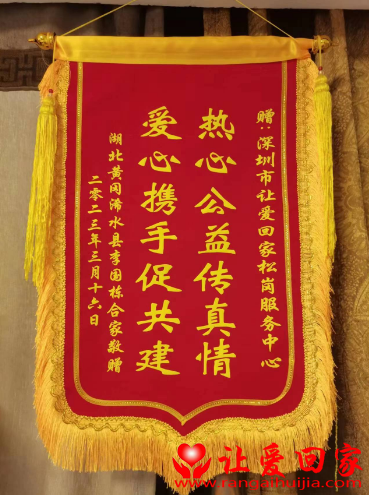 赠:深圳市让爱回家松岗服务中心
热心公益传真情
爱心携手促共建
湖北黄冈浠水县李国栋合家敬赠
二零二三年三月十六日
让爱回家
www.rangaihuijia.com